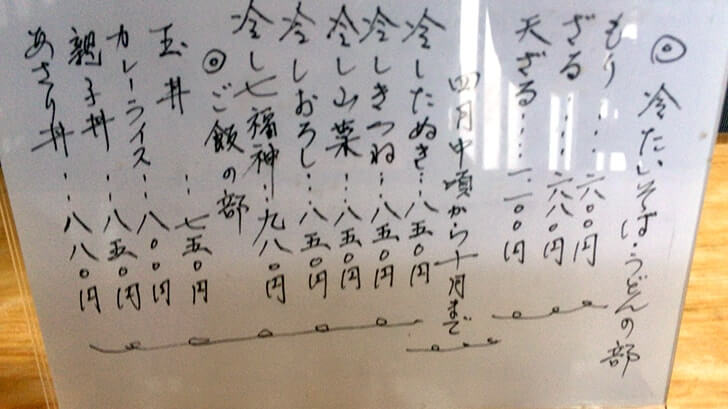 ◎ 冷たいそば・うどんの部
もり・・・・六〇〇円
ざる・・・・六八〇円
天ざる・・・・一二〇〇円
四月中頃から十月まで
冷したぬき・・・八五〇円
冷しきつね・・・八五〇円
冷し山菜・・・八五〇円
冷しおろし・・・八五〇円
冷し七福神・・・九八〇円
◎ご飯の部
玉丼・・・七五〇円
カレーライス・・・八〇〇円
親子丼・・・八五〇円
あさり丼・・・八八〇円